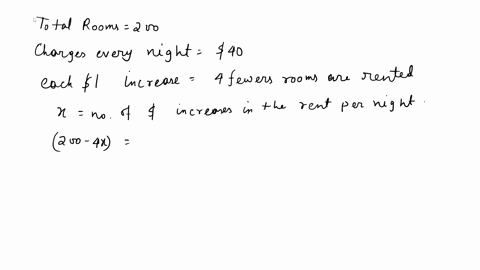 Total Rooms = 200
Charges every night = $40
each $1 increase = 4 fewers rooms are rented
x = no. of $ increases in the rent per night.
(200-4x) =